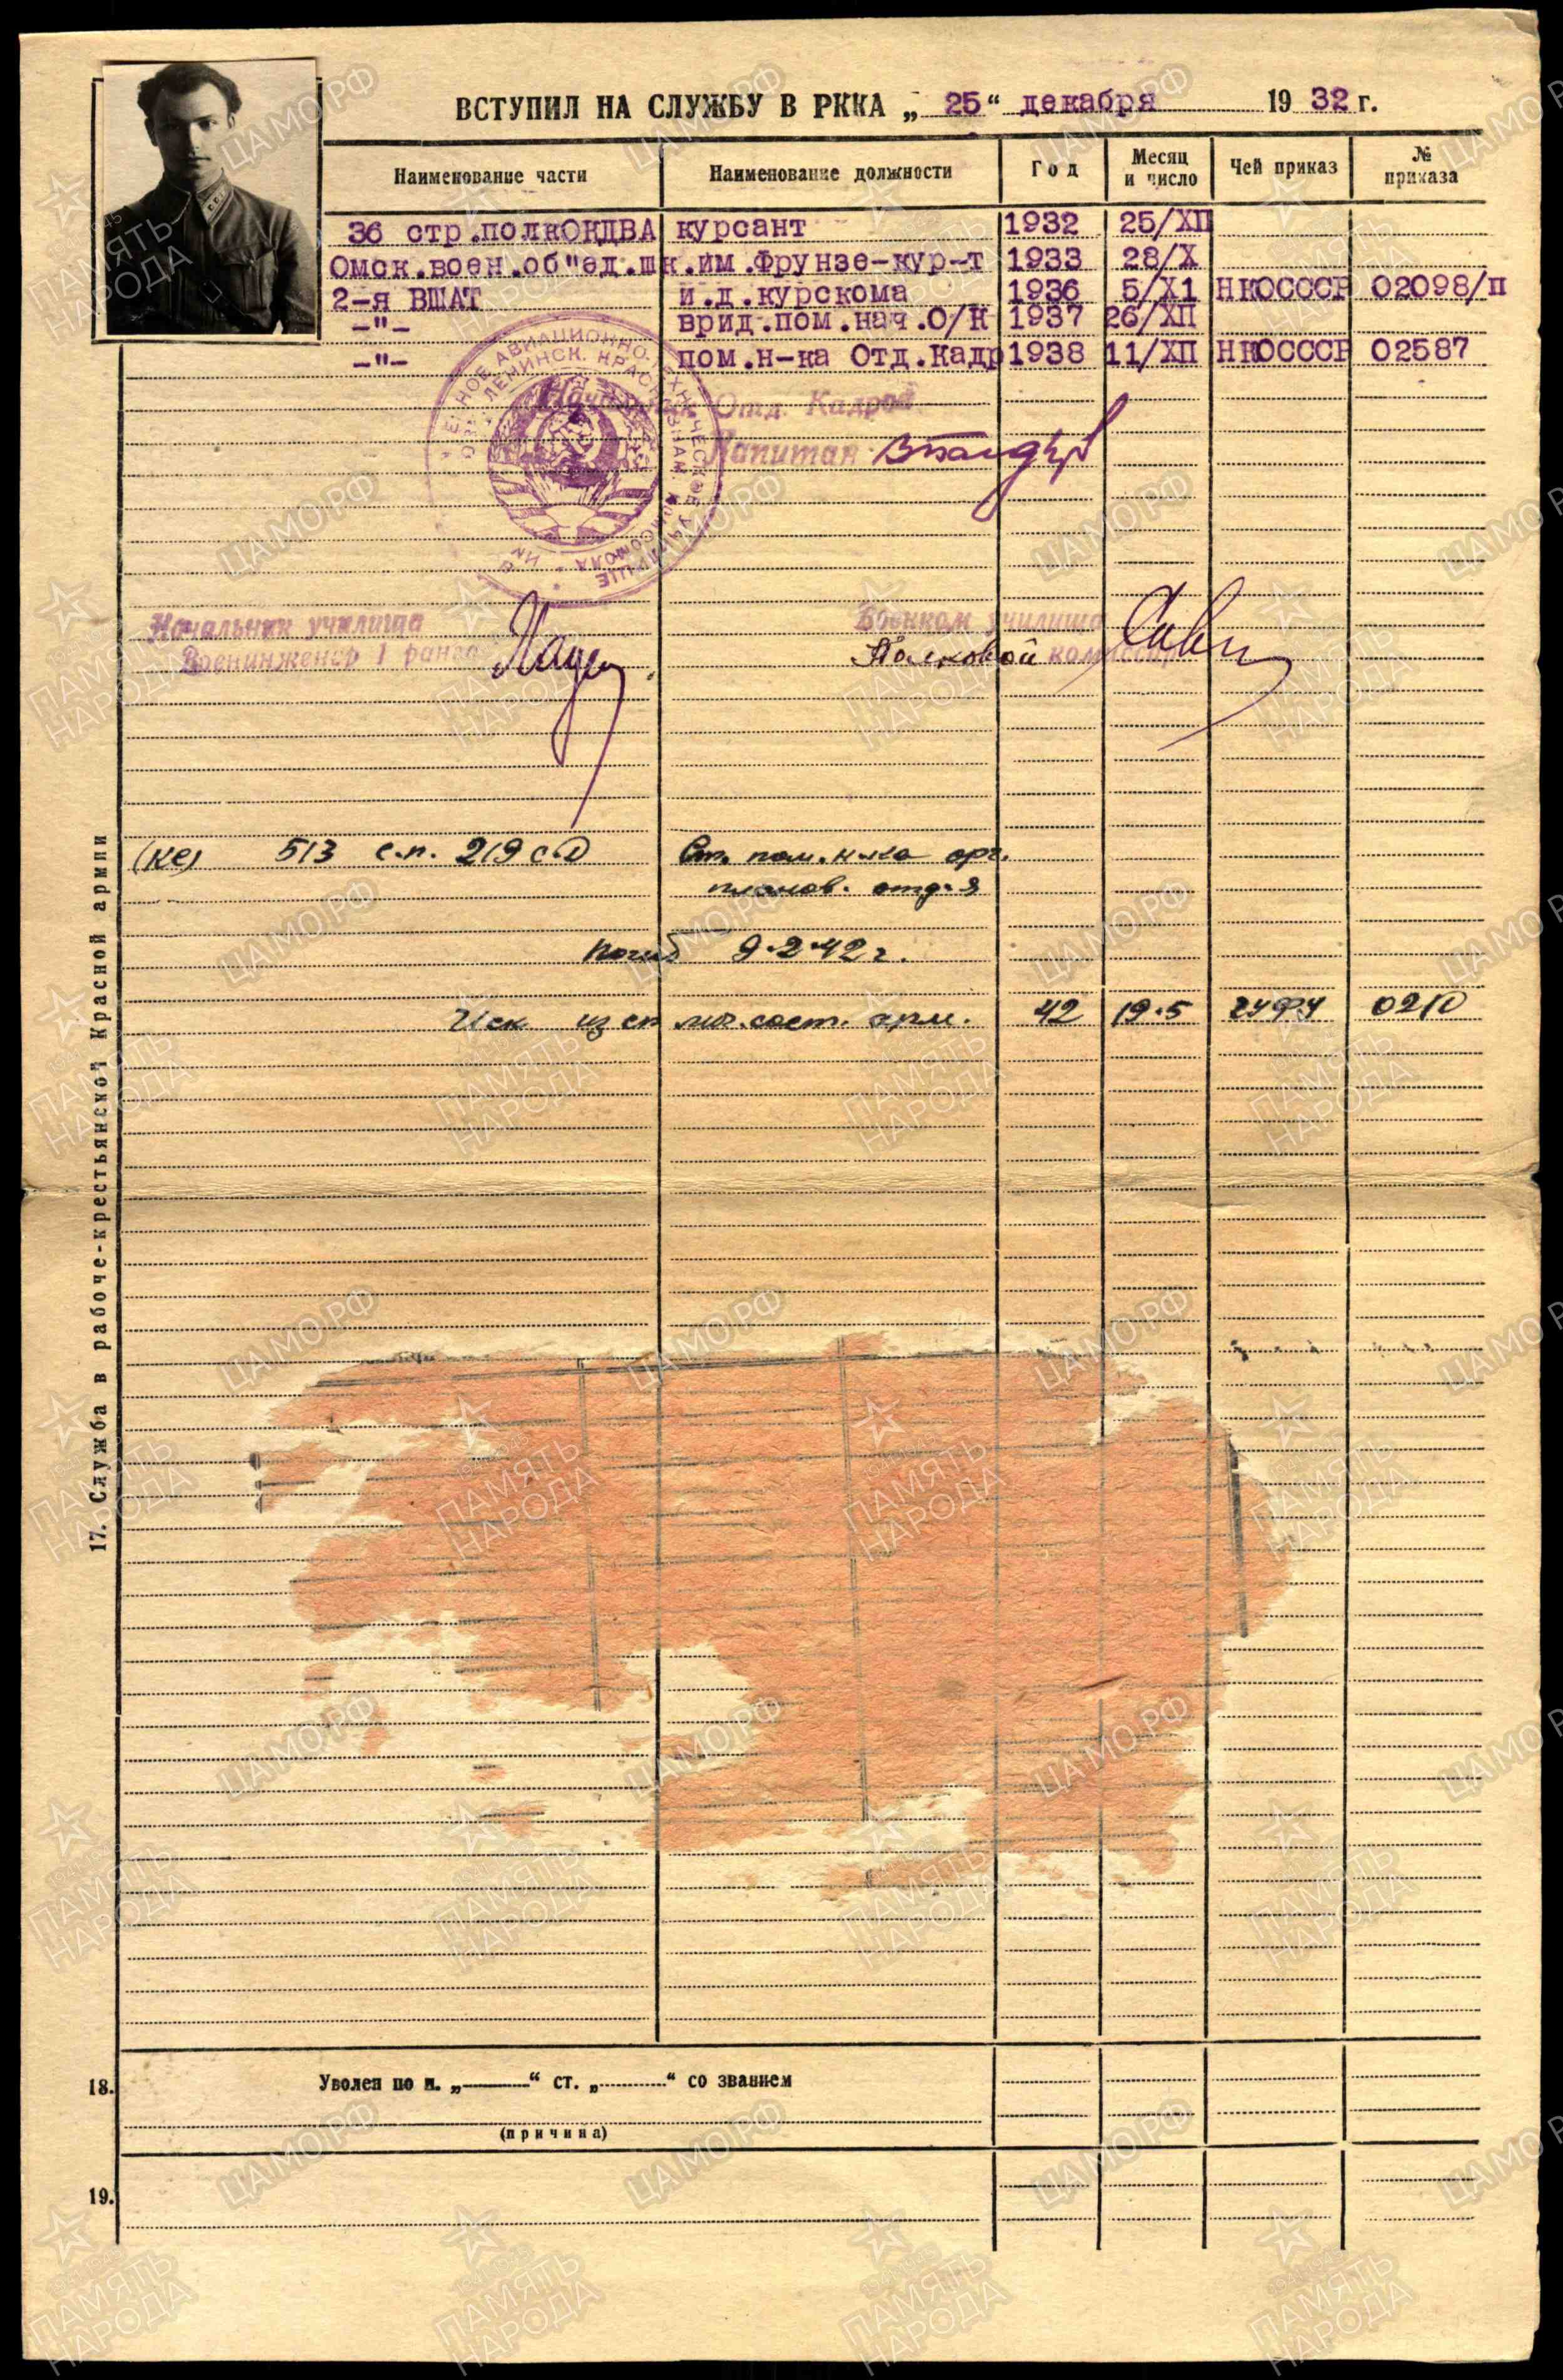 ВСТУПИЛ НА СЛУЖБУ В РККА „25“ декабря 1932 г.
Наименование части Наименование должности Год Месяц и число Чей приказ № приказа
36 стр.полкОКДВА курсант 1932 25/ХП
Омск.воен.об"ед.шк.им.Фрунзе-кур-т 1933 28/Х
2-я ВШАТ и.д.курскома 1936 5/Х1 НКОСССР 02098/п
-"- врид.пом.нач.О/К 1937 26/ХП
-"- пом.н-ка Отд.Кадр 1938 11/ХП НКОСССР 02587
Начальник Отд. Кадров
Капитан
Начальник училища
Военинженер 1 ранга
Военком училища
Полковой комиссар
513 с.п. 219 с.д Ст. пом. н-ка орг.
планов. отд-я
погиб 9.2.42 г.
Иск из сп лич. сост. арм. 42 19.5 0210
17. Служба в рабоче-крестьянской Красной армии
18. Уволен по п. „——“ ст. „......“ со званием
(причина)
19.
ЦАМО.РФ
ПАМЯТЬ НАРОДА